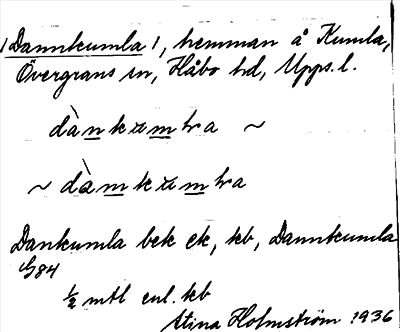 1 Dannkumla 1, hemman å Kumla,
Övergrans sn, Håbo hd, Upps. l.
dànkumla ~
~ dàmkumla
Dankumla bek ek, kb, Dannkumla
4/9 84
½ mtl enl. kb
Stina Holmström 1936